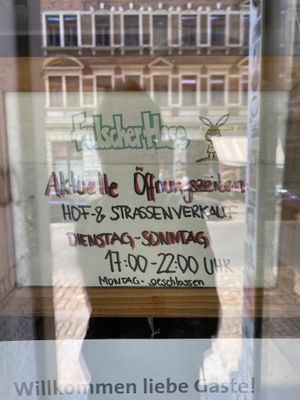 Falscher Hase
Aktuelle Öffnungszeiten!
HOF-& STRASSENVERKAUF
DIENSTAG-SONNTAG
17:00-22:00 UHR
MONTAG- geschlossen
Willkommen liebe Gäste!